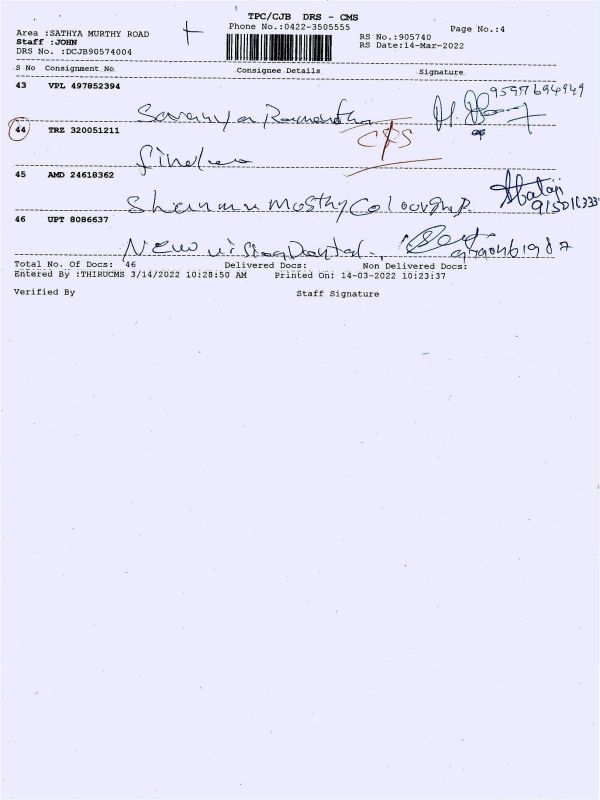 TPC/CJB DRS - CMS
Phone No.:0422-3505555
Page No.:4
Area :SATHYA MURTHY ROAD
RS No.:905740
Staff :JOHN
RS Date:14-Mar-2022
DRS No. :DCJB90574004
S No Consignment No Consignee Details Signature
43 VPL 497852394
9597694949
44 TRZ 320051211
CPS
45 AMD 24618362
46 UPT 8086637
New
Total No. Of Docs: 46 Delivered Docs: Non Delivered Docs:
Entered By :THIRUCMS 3/14/2022 10:28:50 AM Printed On: 14-03-2022 10:23:37
Verified By Staff Signature